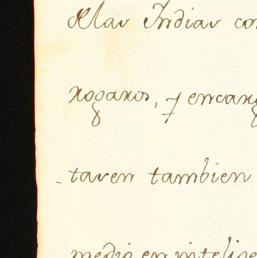 delas Indias co
rogaros, y encarg
- taren tambien
medio en intelige